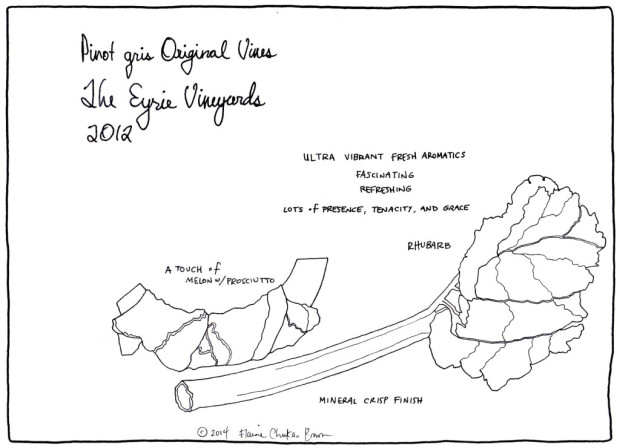 Pinot gris Original Vines
The Eyrie Vineyards
2012
ULTRA VIBRANT FRESH AROMATICS
FASCINATING
REFRESHING
LOTS of PRESENCE, TENACITY, AND GRACE
RHUBARB
A TOUCH of
MELON w/ PROSCIUTTO
MINERAL CRISP FINISH
© 2014 Elaine Chukan Brown